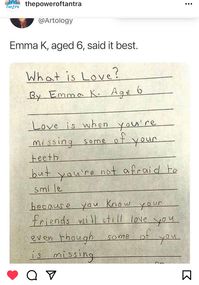 thepoweroftantra
@Artology
Emma K, aged 6, said it best.
What is Love?
By Emma K. Age 6
Love is when you're
missing some of your
teeth
but you're not afraid to
smile
because you know your
friends will still love you
even though some of you
is missing